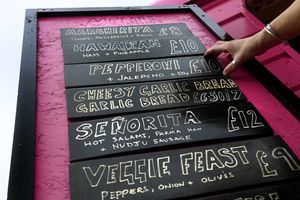 MARGHERITA £8
HAWAIIAN £10
HAM + PINEAPPLE
PEPPERONI £10
+ JALEPENO +
CHEESY GARLIC BREAD
GARLIC BREAD
SEÑORITA £12
HOT SALAMI, PARMA HAM
+ NUDJU SAUSAGE
VEGGIE FEAST £9
PEPPERS, ONION + OLIVES